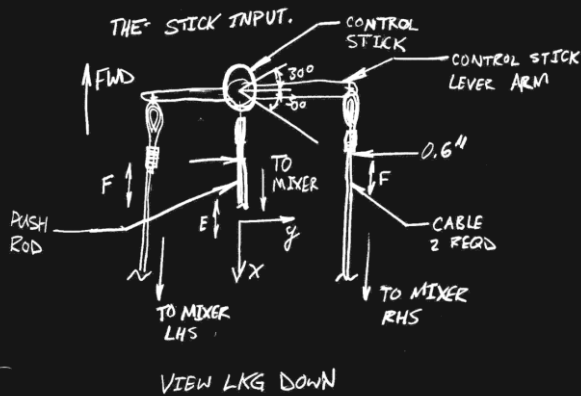 THE STICK INPUT.
CONTROL
STICK
CONTROL STICK
LEVER ARM
FWD
30°
0.6"
F
TO
MIXER
F
PUSH
ROD
E
y
CABLE
2 REQD
x
TO MIXER
LHS
TO MIXER
RHS
VIEW LKG DOWN